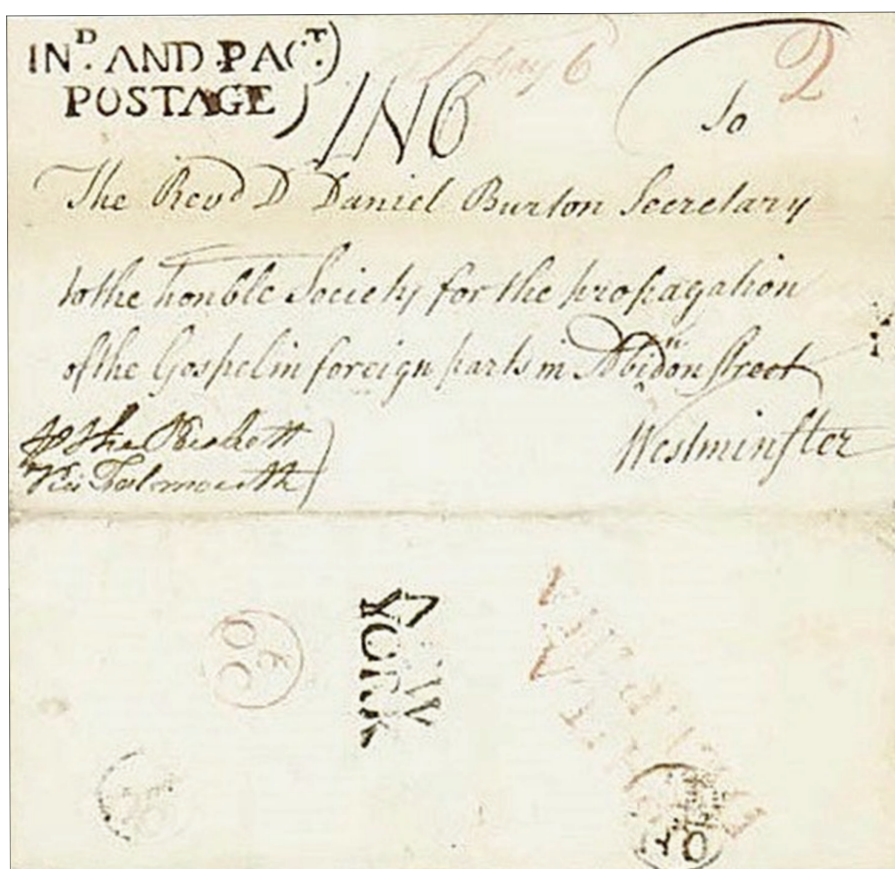 IN.D AND PAC.T
POSTAGE
1N6
2
To
The Revd D Daniel Burton Secretary
to the honble Society for the propagation
of the Gospel in foreign parts in Abidon street
Westminster
Via Falmouth
NEW
YORK